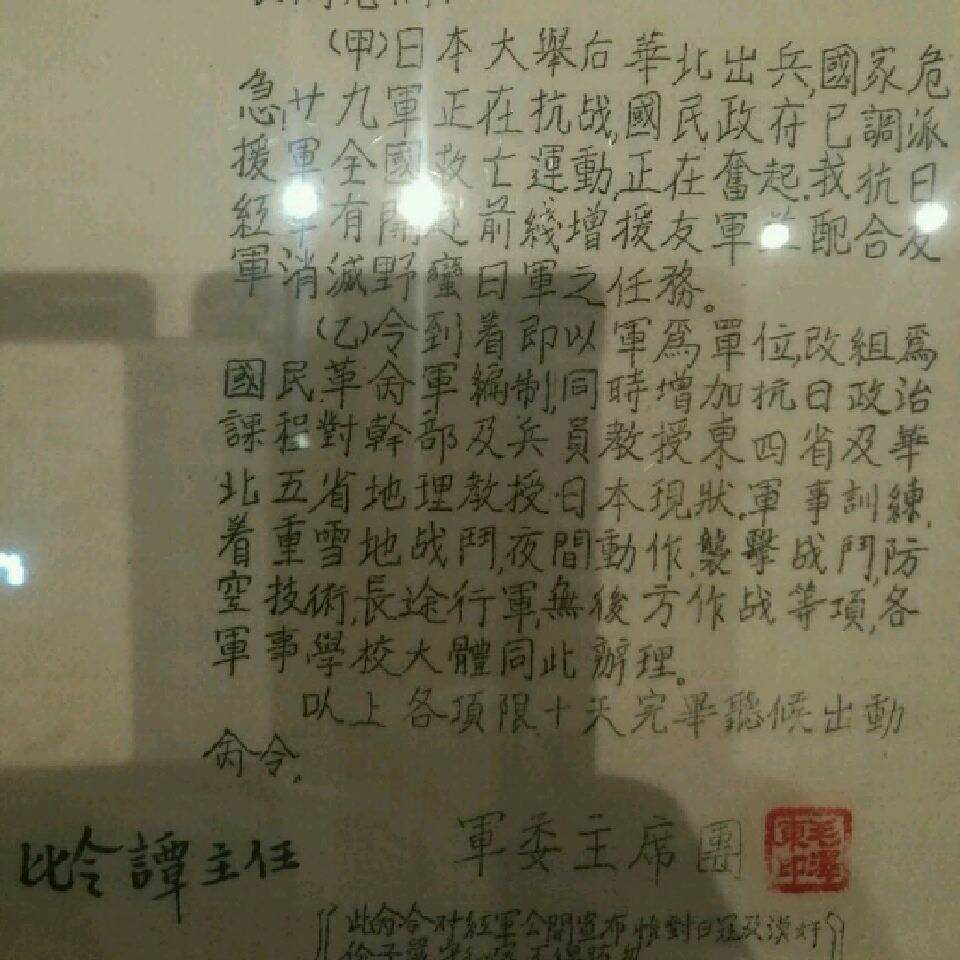 (甲)日本大舉向華北出兵,國家危
急,廿九軍正在抗战,國民政府已調派
援軍全國救亡運動,正在奮起.我抗日
紅軍有開赴前綫增援友軍並配合友
軍消滅野蠻日軍之任務。
(乙)令到着即以軍爲單位,改組爲
國民革命軍編制,同時增加抗日政治
課程對幹部及兵員教授東四省及華
北五省地理教授日本現狀.軍事訓練,
着重雪地战鬥,夜間動作,襲擊战鬥,防
空技術,長途行軍,無後方作战等項,各
軍事學校大體同此辦理。
以上各項限十天完畢聽候出動
命令。
軍委主席團
毛澤東印
此令譚主任
此命令对紅軍公開宣布惟對日寇及漢奸